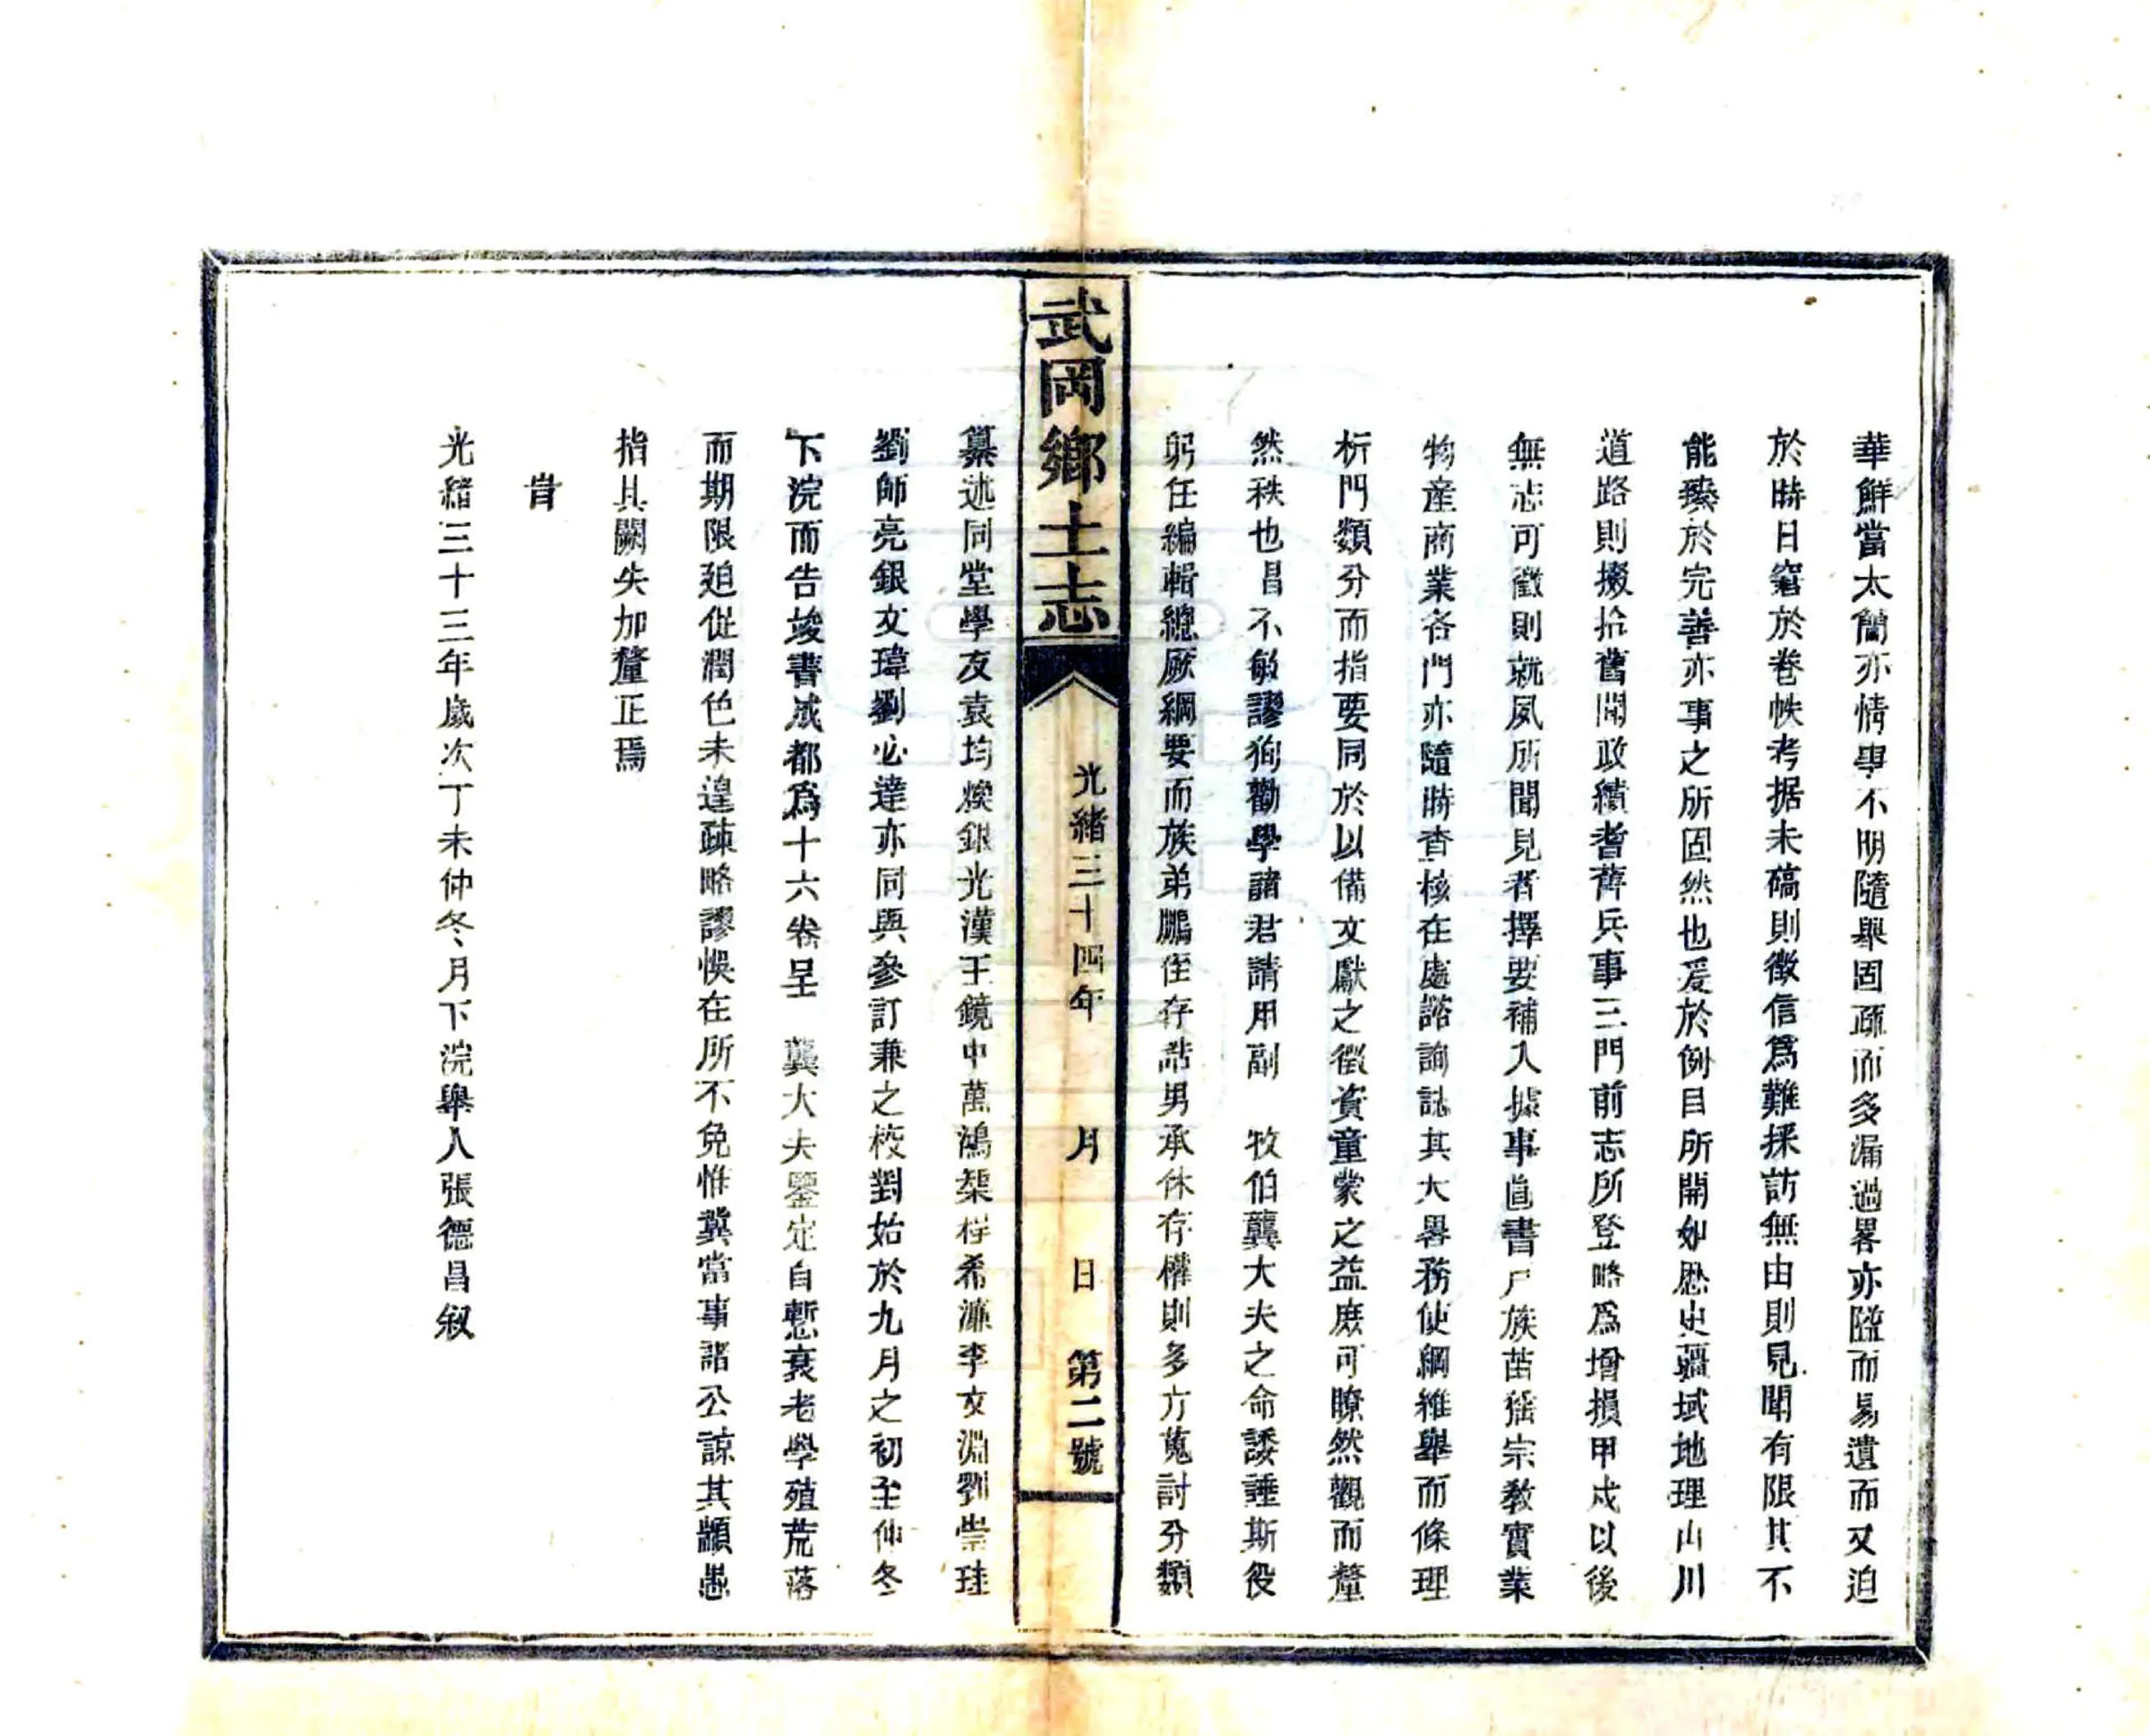 華鮮當太簡亦情事不明隨舉固疏而多漏過畧亦隘而易遺而又迫
於時日窘於卷帙考据未礄則徵信爲難採訪無由則見聞有限其不
能臻於完善亦事之所固然也爰於例目所開如歷史疆域地理山川
道路則掇拾舊聞政績耆舊兵事三門前志所登略爲增損甲戍以後
無志可徵則就夙所聞見者擇要補入據事直書戸族苗猺宗教實業
物產商業各門亦隨時查核在處諮詢誌其大畧務使綱維舉而條理
析門類分而指要同於以備文獻之徵資童蒙之益庶可瞭然觀而釐
然秩也昌不敏謬狥勸學諸君請用副 牧伯龔大夫之命諉諈斯役
躬任編輯總厥綱要而族弟鵬侄存誥男承休存權則多方蒐討分類
武岡鄉土志
光緒三十四年 月 日 第二號
纂述同堂學友袁均燠銀光漢王鏡中萬鴻榘桴希濂李文淵劉崇珪
劉師亮銀文瑋劉必達亦同與參訂兼之校對始於九月之初至仲冬
下浣而告竣書成都爲十六卷呈 龔大夫鑒定自慙衰老學殖荒落
而期限廹促潤色未遑疎略謬悞在所不免惟冀當事諸公諒其顓愚
指其闕失加釐正焉
旹
光緒三十三年歲次丁未仲冬月下浣舉人張德昌叙